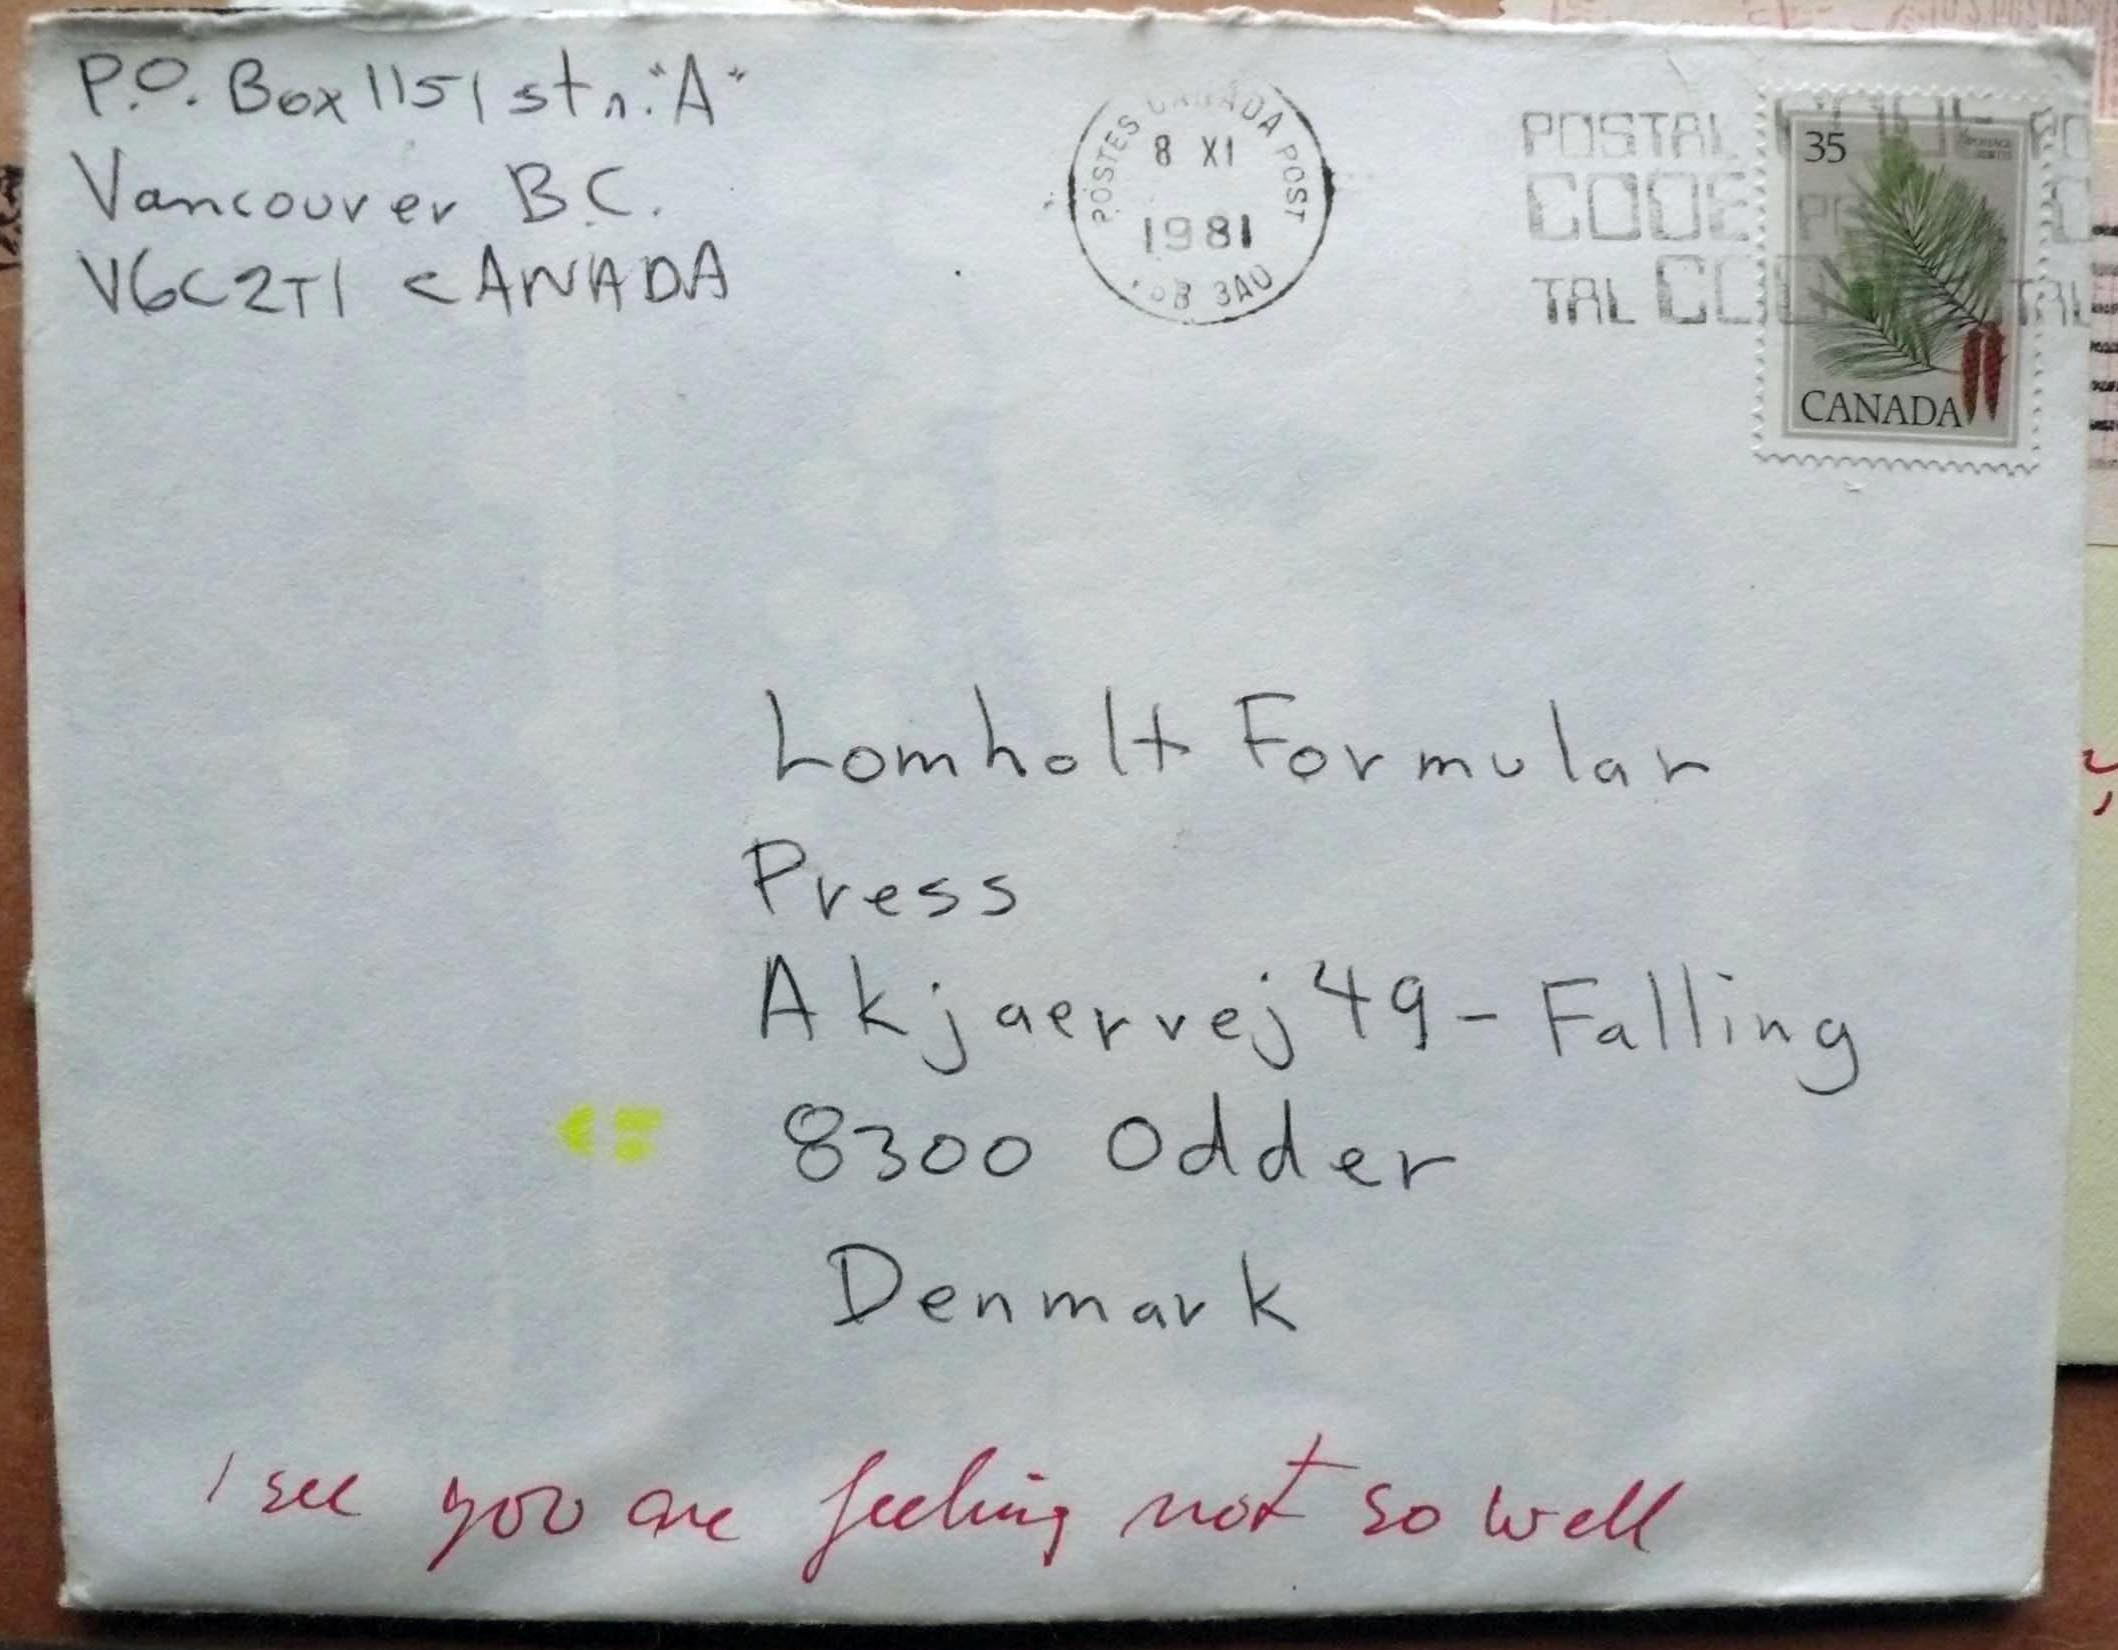 P.O. Box 1151 stn. "A"
Vancouver B.C.
V6C2T1 CANADA
POSTES CANADA POST
8 XI
1981
3A0
POSTAL
CODE
TAL
35
CANADA
Lomholt Formular
Press
Akjaervej 49 - Falling
8300 Odder
Denmark
I see you are feeling not so well